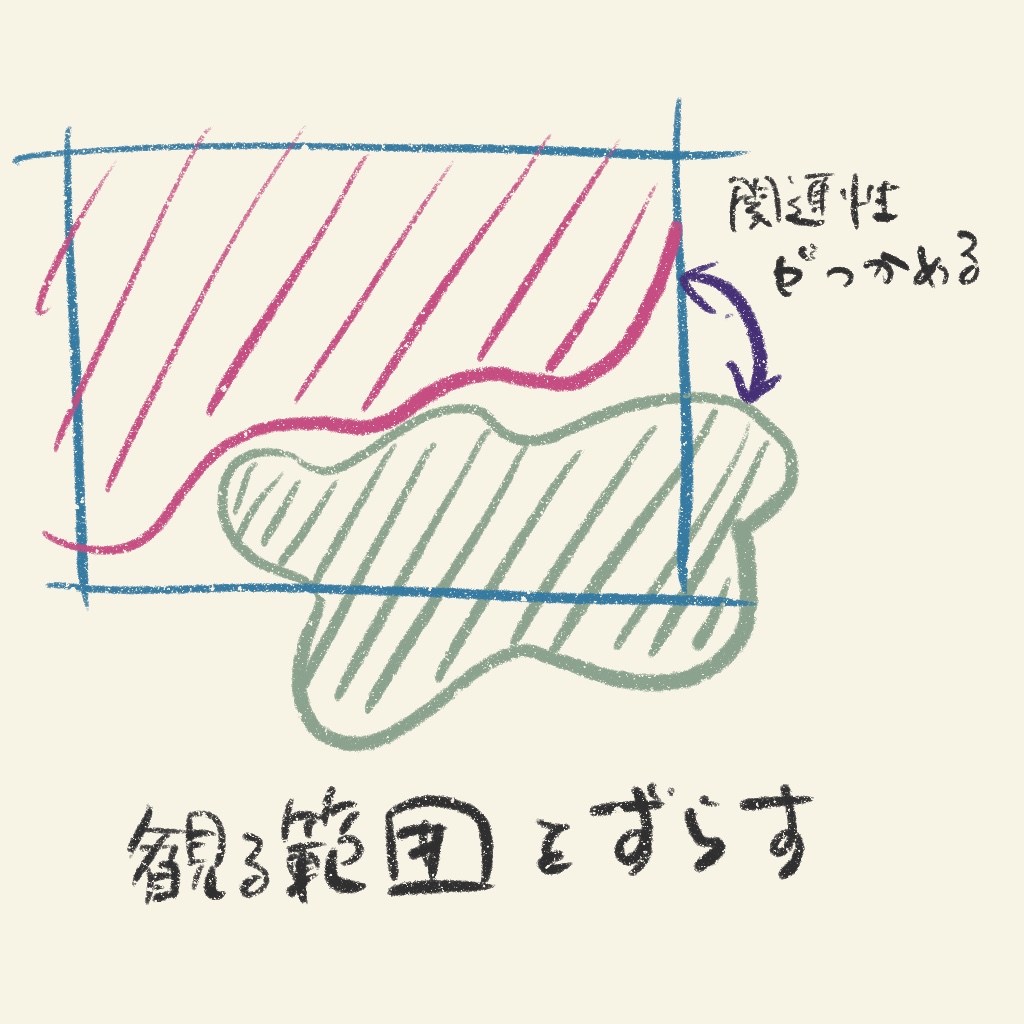 関連性
がつかめる
観る範囲をずらす